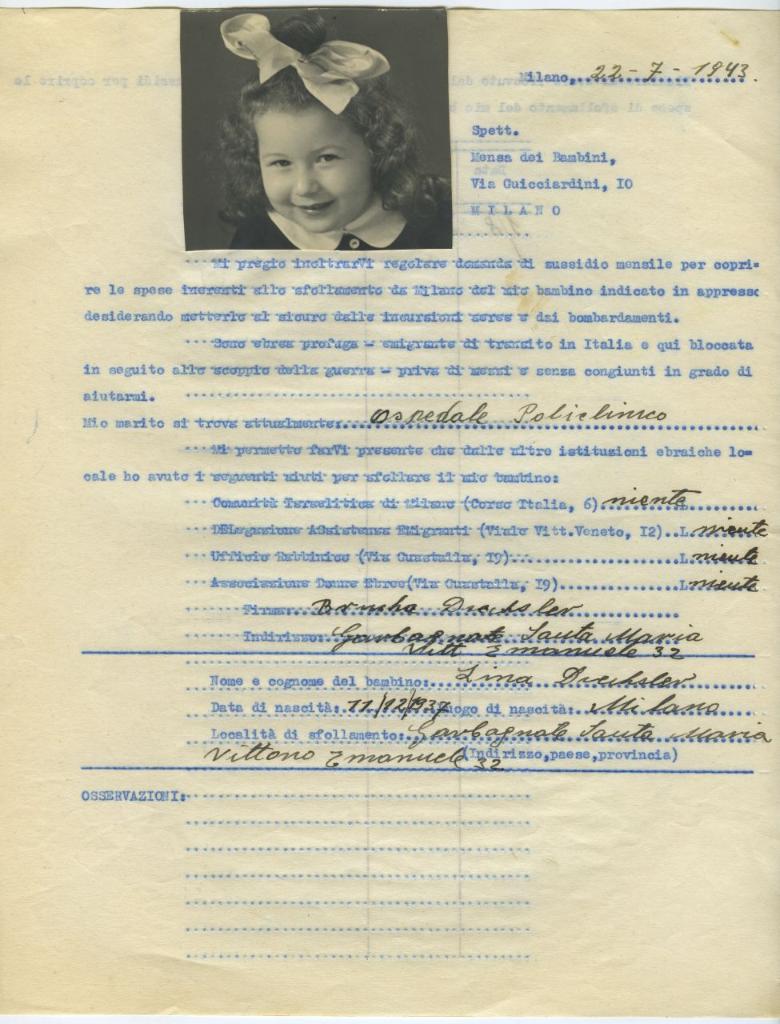 Milano, 22-7-1943.
Spett.
Mensa dei Bambini,
Via Guicciardini, 10
MILANO
Mi pregio inoltrarVi regolare domanda di sussidio mensile per copri=
re le spese inerenti allo sfollamento da Milano del mio bambino indicato in appresso
desiderando metterlo al sicuro dalle incursioni aeree e dai bombardamenti.
Sono ebrea profuga - emigrante di transito in Italia e qui bloccata
in seguito allo scoppio della guerra - priva di mezzi e senza congiunti in grado di
aiutarmi.
Mio marito si trova attualmente: Ospedale Policlinico
Mi permetto farVi presente che dalle altre istituzioni ebraiche lo=
cale ho avuto i seguenti aiuti per sfollare il mio bambino:
Comunità Israelitica di Milano (Corso Italia, 6) niente
DElegazione ASsistenza EMigranti (Viale Vitt.Veneto, 12)..L. niente
Ufficio Rabbinico (Via Guastalla, 19) L. niente
Associazione Donne Ebree(Via Guastalla, 19) L. niente
Firma: Brucha Drechsler
Indirizzo: Garbagnate Santa Maria
Vitt Emanuele 32
Nome e cognome del bambino: Lina Drechsler
Data di nascità: 11/12/1937 luogo di nascità: Milano
Località di sfollamento: Garbagnate Santa Maria
Vittorio Emanuele 32 (Indirizzo,paese,provincia)
OSSERVAZIONI: